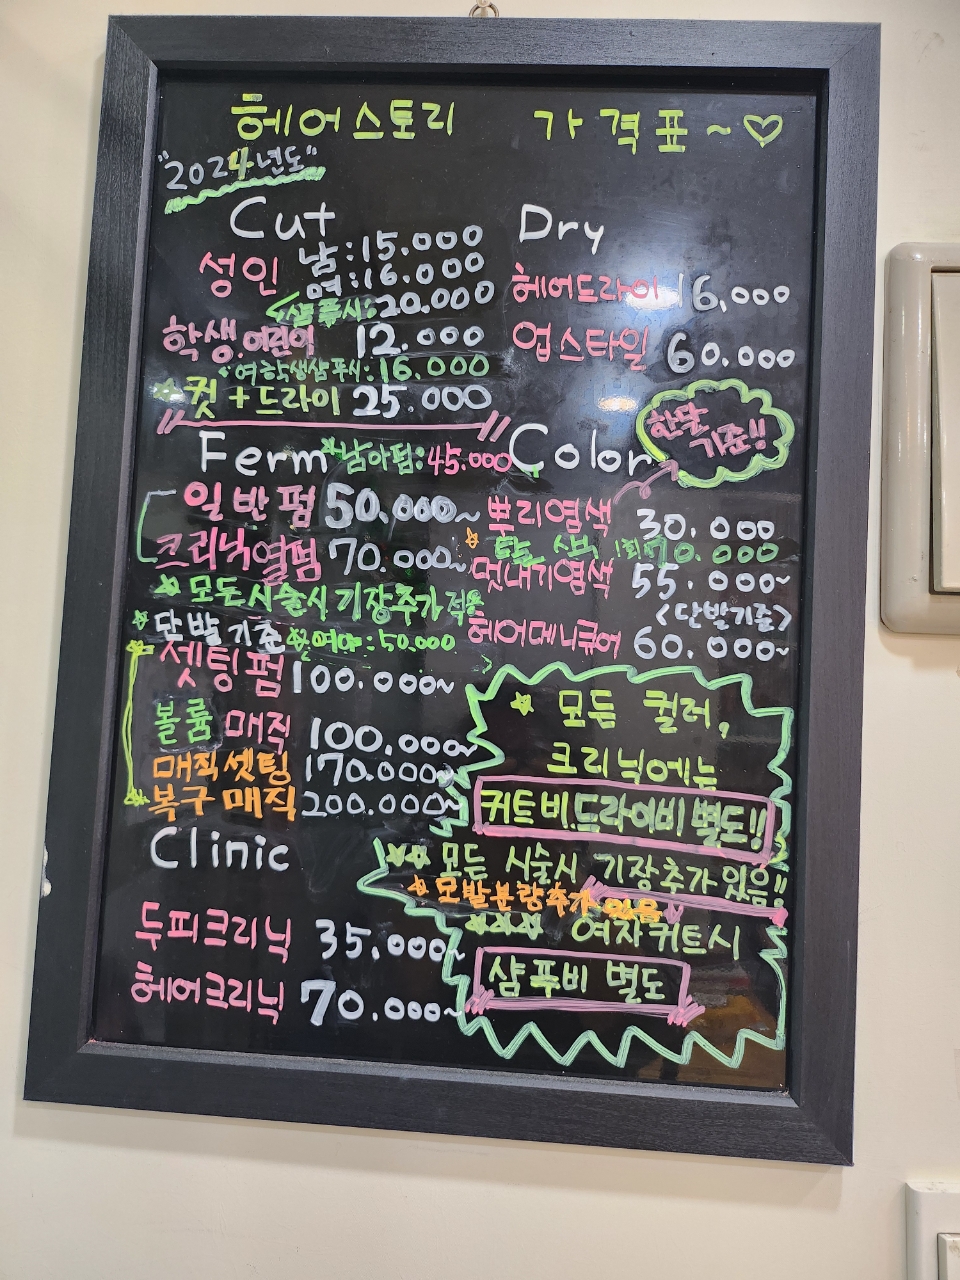 헤어스토리 가격표~♡
"2024년도"
Cut
성인 남:15.000
여:16.000
샴푸시:20.000
학생.어린이 12.000
여학생샴푸시:16.000
컷+드라이 25.000
Ferm 남아펌:45.000
일반펌 50.000~
크리닉열펌 70.000~
모든시술시 기장추가적용
단발기준 여아:50.000
셋팅펌 100.000~
볼륨매직 100.000~
매직셋팅 170.000~
복구매직 200.000~
Clinic
두피크리닉 35.000~
헤어크리닉 70.000~
Dry
헤어드라이 16,000
업스타일 60.000
Color
한달
기준!!
뿌리염색 30.000
1회 70.000
멋내기염색 55.000~
<단발기준>
헤어매니큐어 60.000~
모든 컬러,
크리닉에는
커트비.드라이비 별도!!
모든 시술시 기장추가 있음!!
모발분량추가 있음
여자커트시
샴푸비 별도